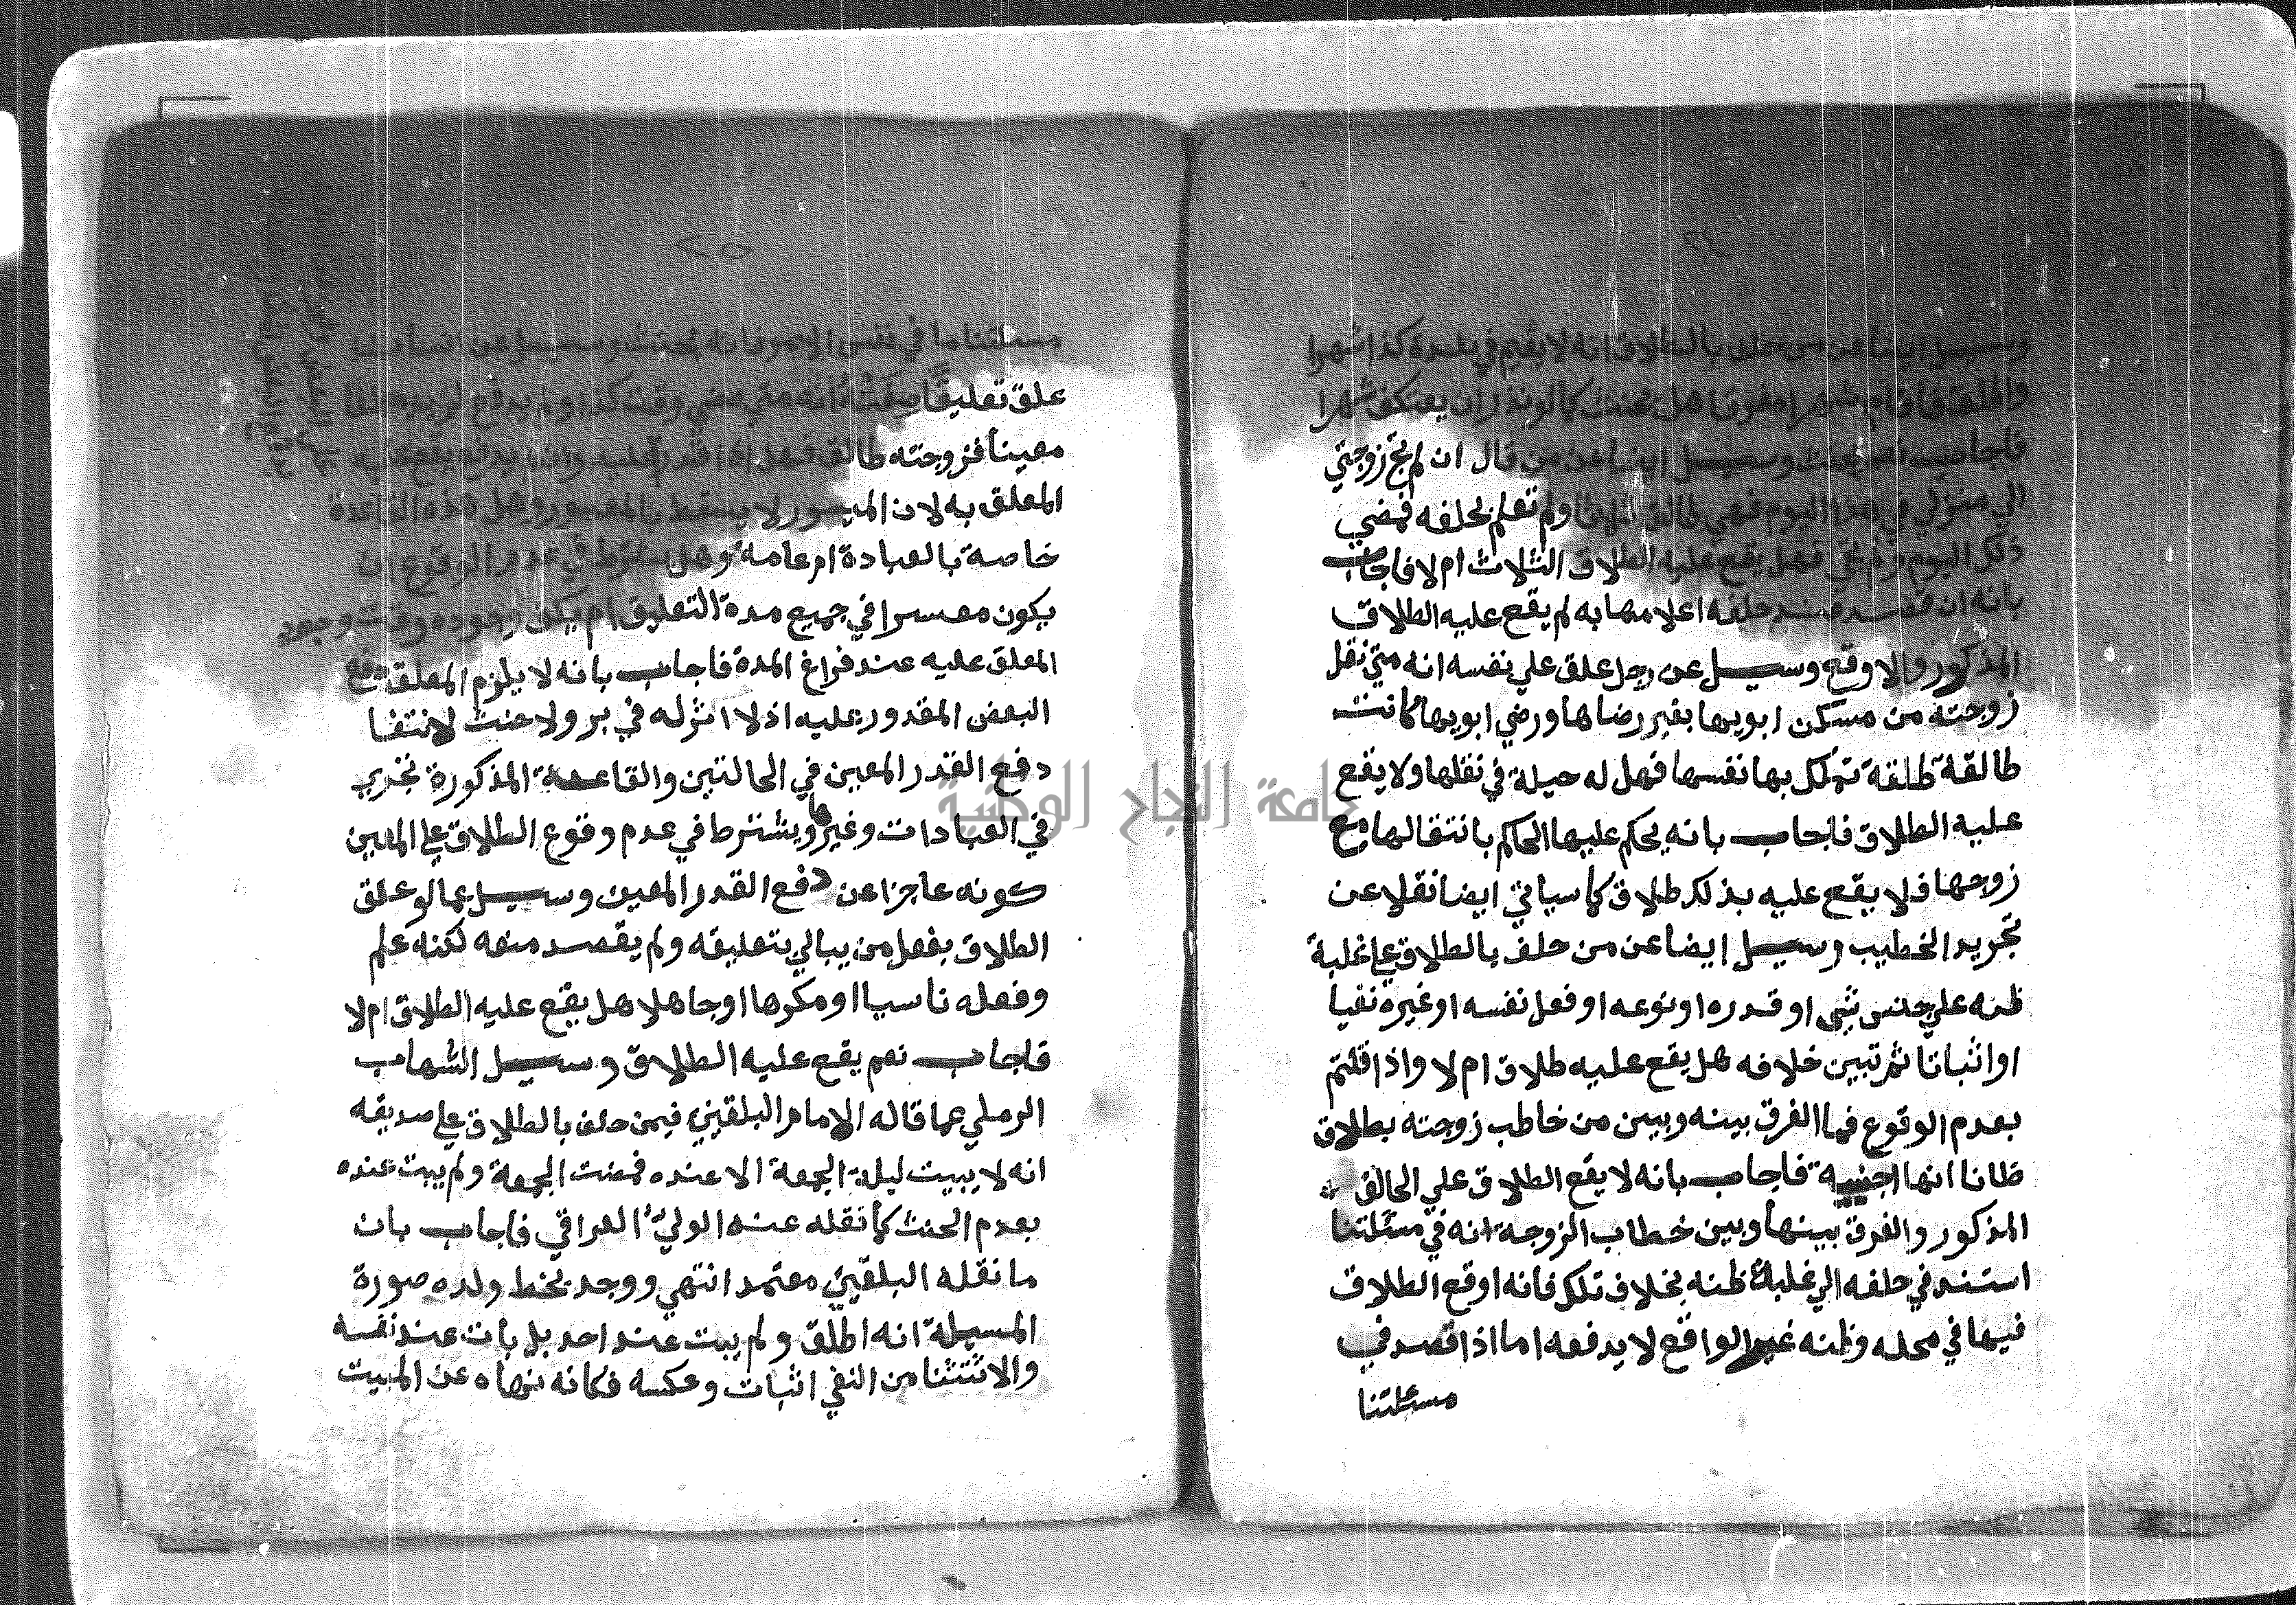 ٢٤
وسيل ايضا عن من حلف بالطلاق انه لا يقيم في بلدة كذا شهرا
واطلق فاقام شهرا مفرقا هل يحنث كما لو نذر ان يعتكف شهرا
فاجاب نعم يحنث وسيل ايضا عن من قال ان لم تج زوجتي
الي منزلي في هذا اليوم فهي طالق ثلاثا ولم تعلم بحلفه فمضي
ذلك اليوم ولم تجي فهل يقع عليه الطلاق الثلاث ام لا فاجاب
بانه ان قصد عند حلفه اعلامها به لم يقع عليه الطلاق
المذكور والا وقع وسيل عن رجل علق علي نفسه انه متي نقل
زوجته من مسكن ابويها بغير رضاها ورضي ابويها كانت
طالقة طلقة تملك بها نفسها فهل له حيلة في نقلها ولا يقع
عليه الطلاق فاجاب بانه يحكم عليها الحاكم بانتقالها مع
زوجها فلا يقع عليه بذلك طلاق كما سياتي ايضا نقلا عن
تجريد الخطيب وسيل ايضا عن من حلف بالطلاق علي غلبة
ظنه علي جنس شي او قدره او نوعه او فعل نفسه او غيره نفيا
او اثباتا ثم تبين خلافه هل يقع عليه طلاق ام لا واذا قلتم
بعدم الوقوع فما الفرق بينه وبين من خاطب زوجته بطلاق
ظانا انها اجنبية فاجاب بانه لا يقع الطلاق علي الحالف
المذكور والفرق بينها وبين خطاب الزوجة انه في مسئلتنا
استند في حلفه الي غلبة ظنه بخلاف تلك فانه اوقع الطلاق
فيها في محله وظنه غير الواقع لا يدفعه اما اذا قصد في
مسئلتنا
٢٥
مسئلتنا ما في نفس الامر فانه يحنث وسيل عن انسان
علق تعليقا صفته انه متي مضي وقت كذا ولم يدفع لزيد مبلغا
معينا فزوجته طالق فهل اذا قدر عليه وان لم يدفع يقع عليه
المعلق به لان الميسور لا يسقط بالمعسور وهل هذه القاعدة
خاصة بالعبادة ام عامة وهل يشترط في عدم الوقوع ان
يكون معسرا في جميع مدة التعليق ام يكفي وجوده وقت وجود
المعلق عليه عند فراغ المدة فاجاب بانه لا يلزم المعلق دفع
البعض المقدور عليه اذ لا اثر له في بر ولا حنث لانتفا
دفع القدر المعين في الحالتين والقاعدة المذكورة تجري
في العبادات وغيرها ويشترط في عدم وقوع الطلاق علي المعين
كونه عاجزا عن دفع القدر المعين وسيل عما لو علق
الطلاق بفعل من يبالي بتعليقه ولم يقصد منعه لكنه علم
وفعله ناسيا او مكرها او جاهلا هل يقع عليه الطلاق ام لا
فاجاب نعم يقع عليه الطلاق وسيل الشهاب
الرملي عما قاله الامام البلقيني فيمن حلف بالطلاق علي صديقه
انه لا يبيت ليلة الجمعة الا عنده فمضت الجمعة ولم يبت عنده
بعدم الحنث كما نقله عنه الولي العراقي فاجاب بان
ما نقله البلقيني معتمد انتهي ووجد بخط ولده صورة
المسيلة انه اطلق ولم يبت عند احد بل بات عند نفسه
والاثتثنا من النفي اثبات وعكسه فكانه نهاه عن المبيت
جامعة النجاح الوطنية